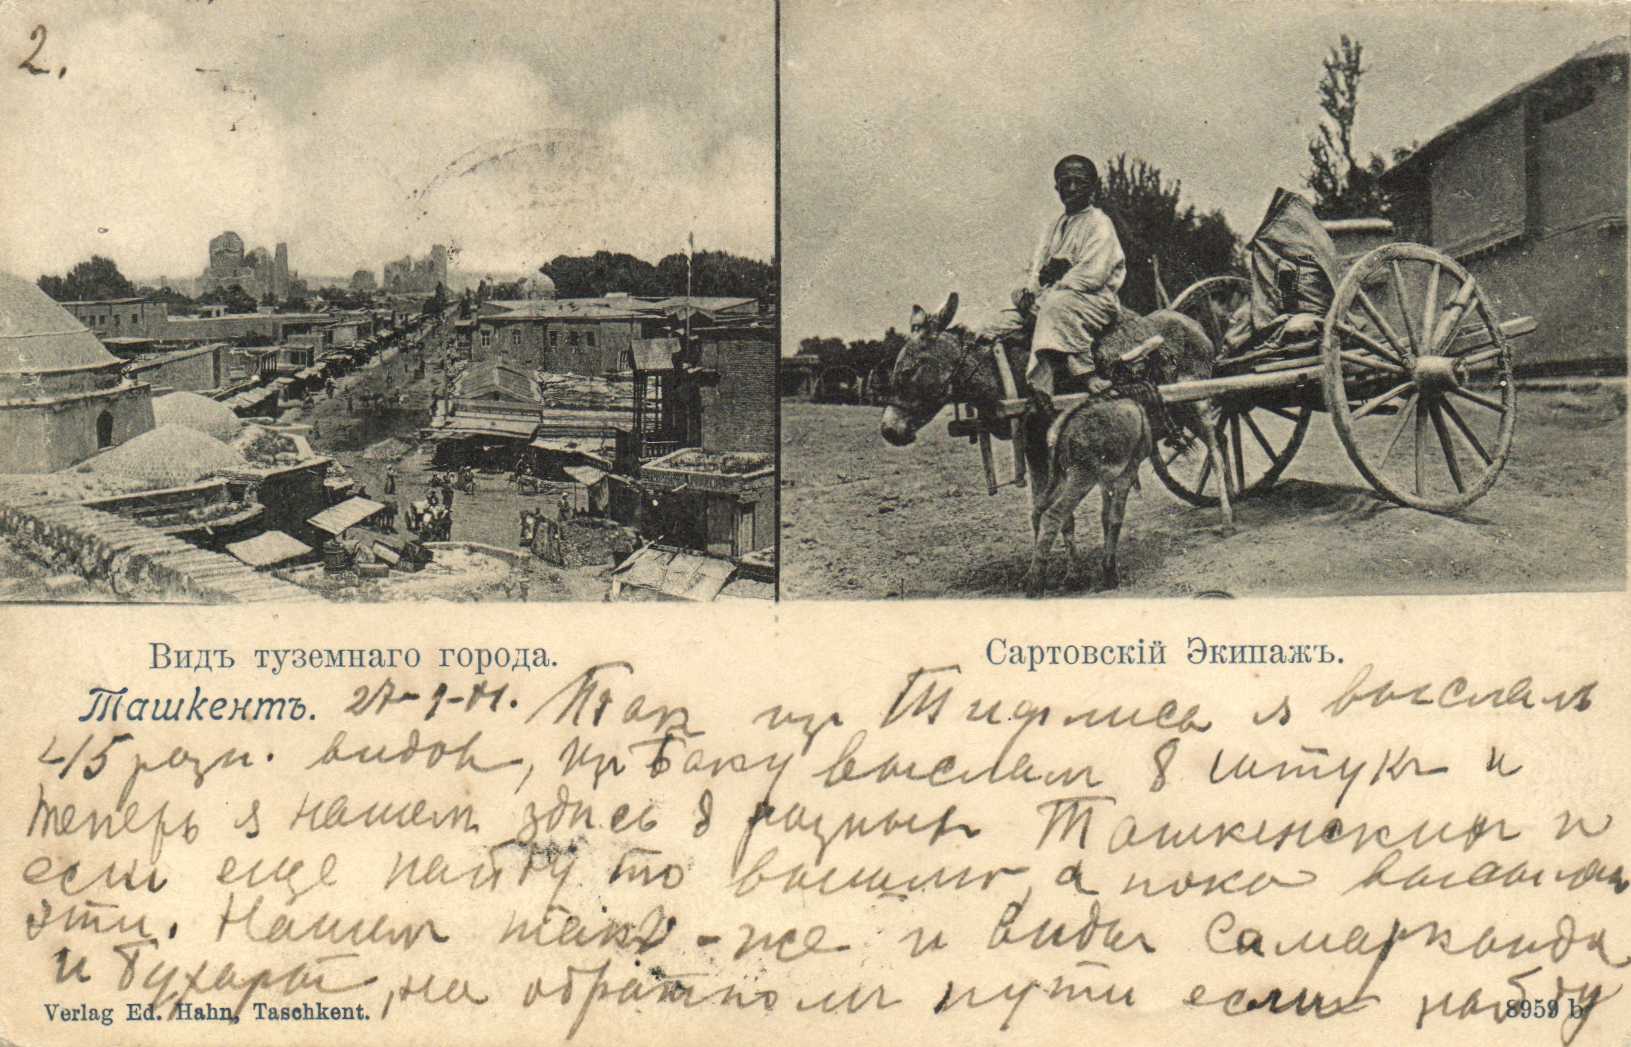 2.
Видъ туземнаго города.
Сартовскій Экипажъ.
Ташкентъ. 27-1-01. Так из Тифлиса я выслал
15 разн. видов, из Баку выслал 8 штук и
теперь я нашел здесь 8 разных Ташкенских и
если еще найду то вышлю, а пока высылаю
эти. Нашел также и виды Самарканда
и Бухары, на обратном пути если найду
Verlag Ed. Hahn, Taschkent.
8959 b